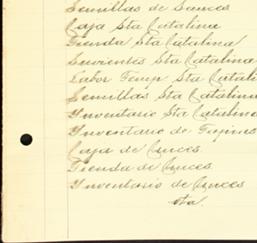 Semillas de Luces
Caja Sta Catalina
Tienda Sta Catalina
Sirvientes Sta Catalina
Labor Temp Sta Catali
Semillas Sta Catalina
Inventario Sta Catalina
Inventario de
Caja de Luces
Tienda de Luces
Inventario de Luces